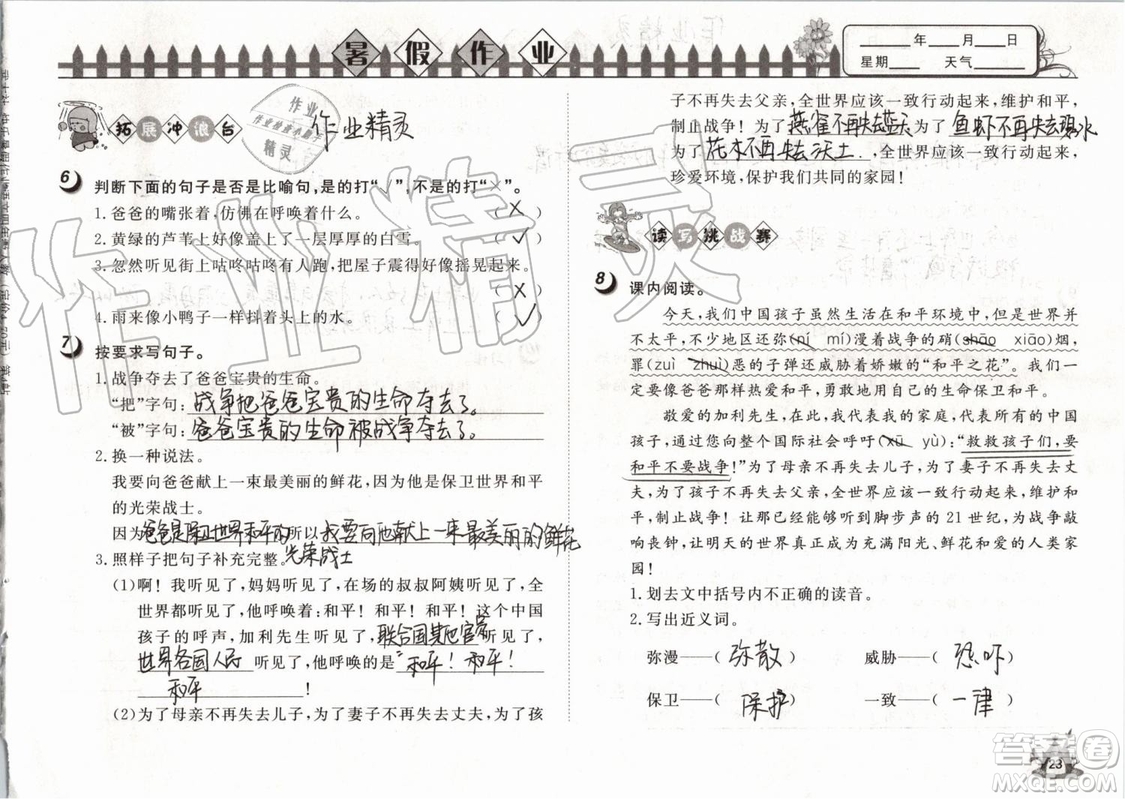 暑假作业
____年____月____日
星期____ 天气____
拓展冲浪台
作业精灵
6 判断下面的句子是否是比喻句,是的打“√”,不是的打“×”。
1.爸爸的嘴张着,仿佛在呼唤着什么。 (×)
2.黄绿的芦苇上好像盖上了一层厚厚的白雪。 (✓)
3.忽然听见街上咕咚咕咚有人跑,把屋子震得好像摇晃起来。
(×)
4.雨来像小鸭子一样抖着头上的水。 (✓)
7 按要求写句子。
1.战争夺去了爸爸宝贵的生命。
“把”字句:战争把爸爸宝贵的生命夺去了。
“被”字句:爸爸宝贵的生命被战争夺去了。
2.换一种说法。
我要向爸爸献上一束最美丽的鲜花,因为他是保卫世界和平
的光荣战士。
因为爸爸是保卫世界和平的所以我要向他献上一束最美丽的鲜花
光荣战士
3.照样子把句子补充完整。
(1)啊!我听见了,妈妈听见了,在场的叔叔阿姨听见了,全
世界都听见了,他呼唤着:和平!和平!和平!这个中国
孩子的呼声,加利先生听见了,联合国其他官员听见了,
世界各国人民听见了,他呼唤的是“和平!和平!
和平!
(2)为了母亲不再失去儿子,为了妻子不再失去丈夫,为了孩
子不再失去父亲,全世界应该一致行动起来,维护和平,
制止战争!为了燕雀不再失去蓝天为了鱼虾不再失去碧水
为了花木不再失去沃土,全世界应该一致行动起来,
珍爱环境,保护我们共同的家园!
读写挑战赛
8 课内阅读。
今天,我们中国孩子虽然生活在和平环境中,但是世界并
不太平,不少地区还弥(ní mí)漫着战争的硝(shāo xiāo)烟,
罪(zuì zhuì)恶的子弹还威胁着娇嫩的“和平之花”。我们一
定要像爸爸那样热爱和平,勇敢地用自己的生命保卫和平。
敬爱的加利先生,在此,我代表我的家庭,代表所有的中国
孩子,通过您向整个国际社会呼吁(xū yù):“救救孩子们,要
和平不要战争!”为了母亲不再失去儿子,为了妻子不再失去丈
夫,为了孩子不再失去父亲,全世界应该一致行动起来,维护和
平,制止战争!让那已经能够听到脚步声的21世纪,为战争敲
响丧钟,让明天的世界真正成为充满阳光、鲜花和爱的人类家
园!
1.划去文中括号内不正确的读音。
2.写出近义词。
弥漫——(弥散) 威胁——(恐吓)
保卫——(保护) 一致——(一律)
23
作业精灵
答案圈
MXQE.COM